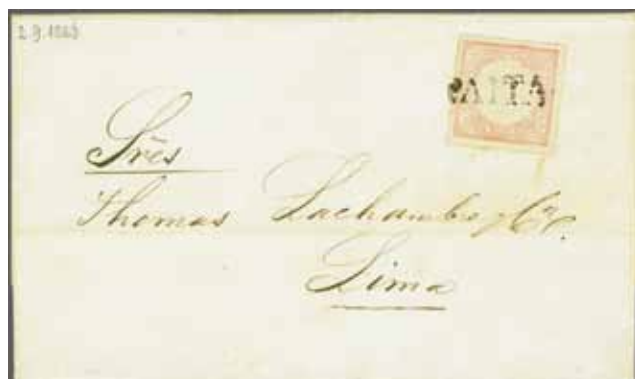 2.9.1863
PAITA
Srēs
Thomas Lachambe y Cᵃ.
Lima